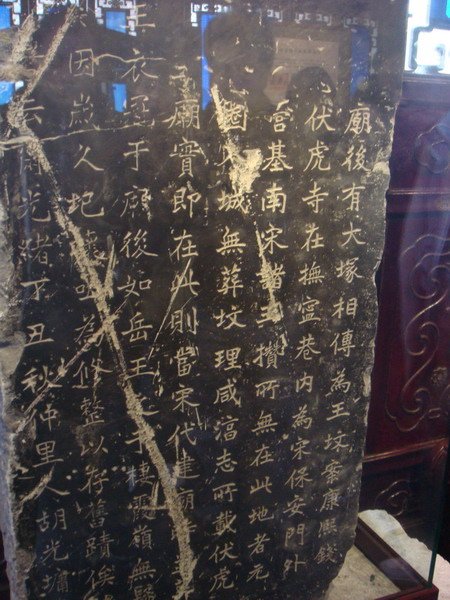 廟後有大塚相傳為王墳案康熙錢
伏虎寺在撫寧巷內為宋保安門外
營基南宋諸王攢所無在此地者元
城無葬墳理咸淳志所載伏虎
廟實即在此則當宋代建廟時
王衣冠于廟後如岳王之于棲霞嶺無疑
因歲久圮壞為修整以存舊蹟俟
云爾光緒丁丑秋仲里人胡光墉